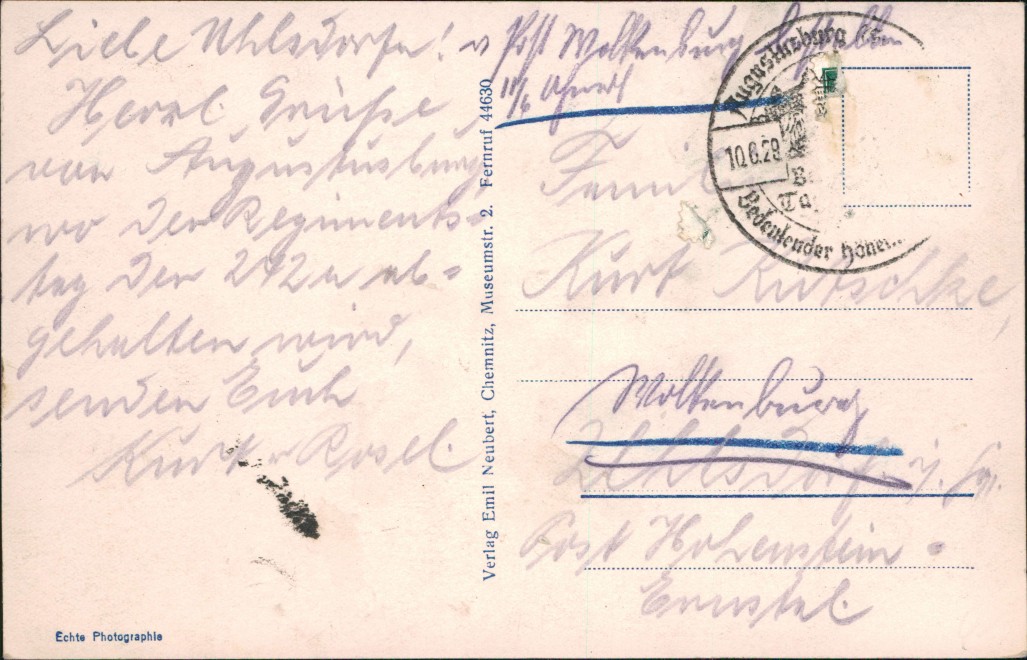 Liebe Uhlsdorfer!
Herzl. Grüße
von Augustusburg
wo der Regiments-
tag der 242er ab=
gehalten wird,
senden Euch
Kurt u Rosel.
Echte Photographie
Verlag Emil Neubert, Chemnitz, Museumstr. 2. Fernruf 44630
Post Wolkenburg
11/6
Augustusburg
10.6.29
Bedeutender Höhen
Famil
Kurt Kutschke,
Wolkenburg
Uhlsdorf
Post Hohenstein=
Ernstal.